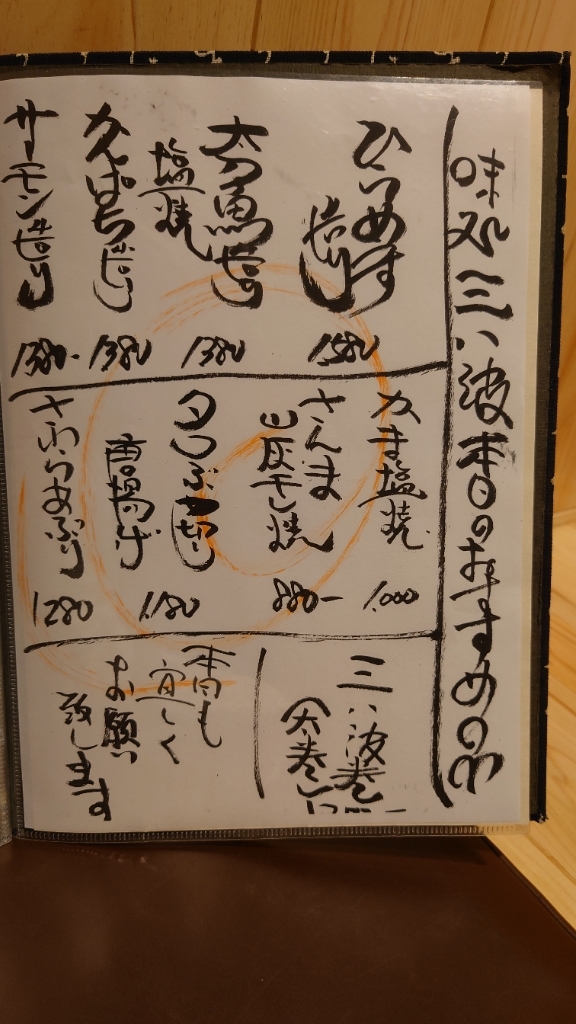 味処三八波本日のおすすめの品
ひらめす
造り
1580
太刀魚造り
塩焼
1380
かんぱち造り
1380
サーモン造り
1380-
かま塩焼
1.000
さんま
灰干し焼
880-
タコぶつ切り
唐揚げ
1.180
さわらあぶり
1280
三八波巻
(太巻)
本日も
宜しく
お願い
致します